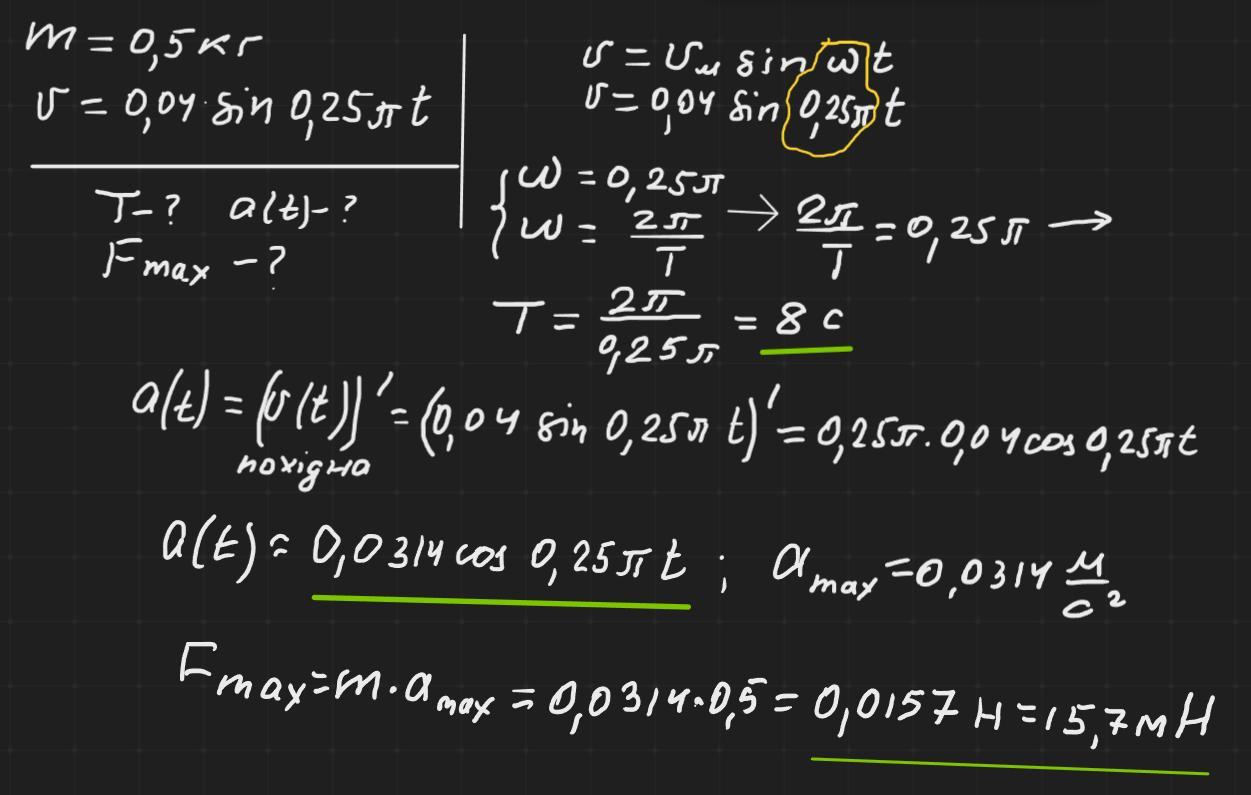 m = 0,5 кг
υ = 0,04·sin 0,25π t
T-? a(t)-?
Fmax -?
υ = υм sin ω t
υ = 0,04 sin 0,25π t
{ ω = 0,25π
ω = 2π/T → 2π/T = 0,25π →
T = 2π/0,25π = 8 с
a(t) = (υ(t))' = (0,04 sin 0,25π t)' = 0,25π·0,04 cos 0,25π t
похідна
a(t) = 0,0314 cos 0,25π t ; amax = 0,0314 м/с²
Fmax = m·amax = 0,0314·0,5 = 0,0157 Н = 15,7 мН